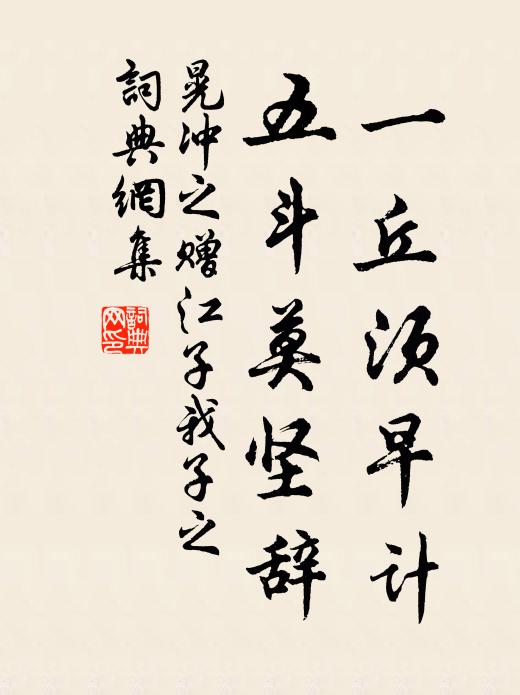 一丘须早计
五斗莫坚辞
晁冲之赠江子我子之
詞典網集
詞典
网印